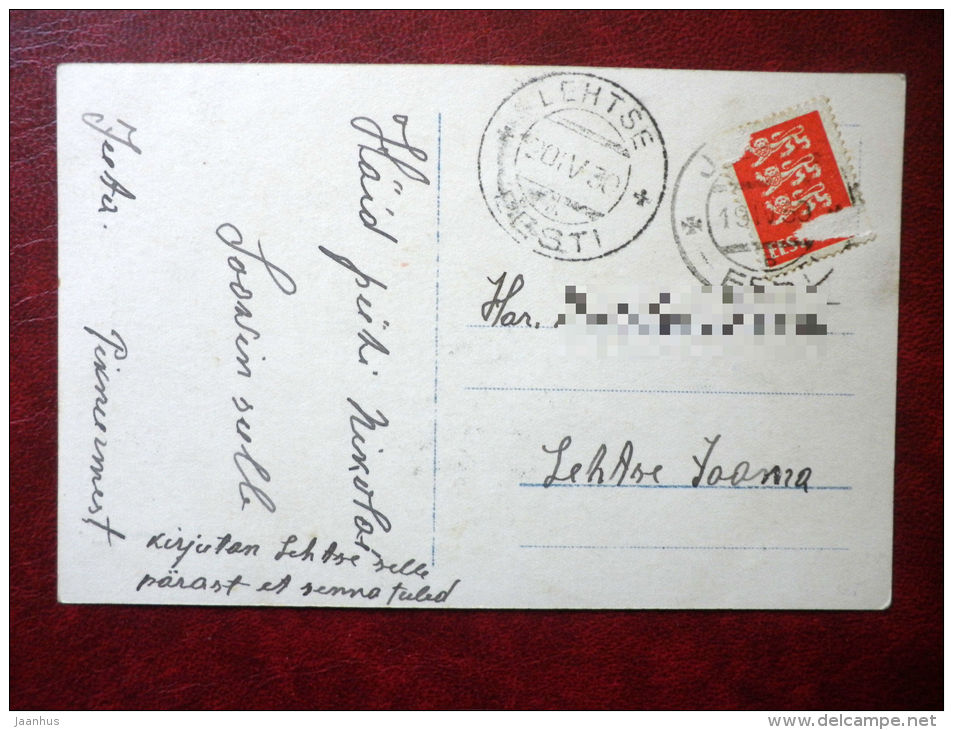 Häid pühi Nikolai
Soovin sulle
Jeeta. Pixneermest
kirjutan Lehtse selle
pärast et senna tuled
LEHTSE
20 IV 30
EESTI
EESTI
Har.
Lehtse Jaama
jaanhus
www.delcampe.net